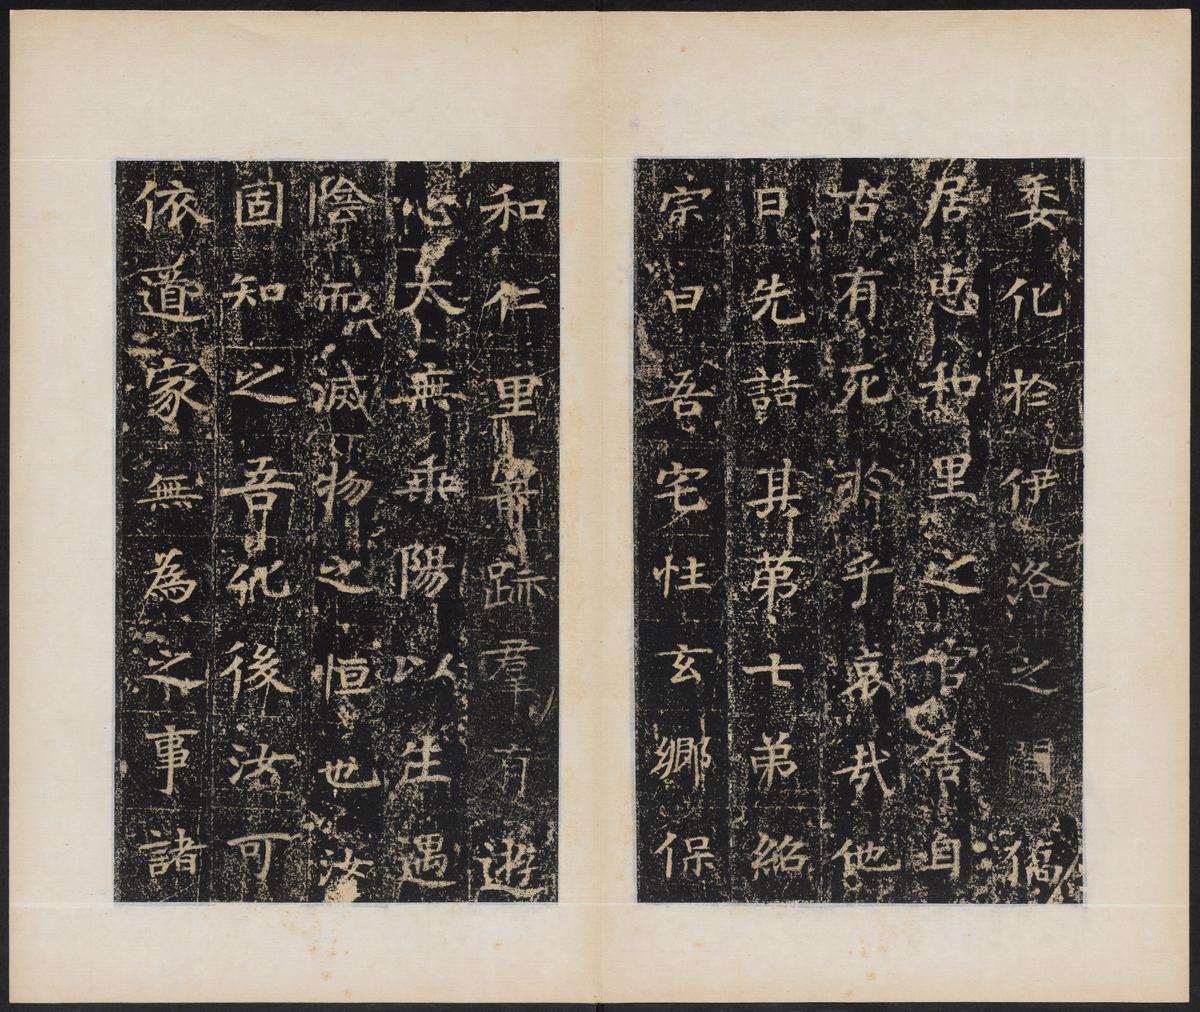 委化於伊洛之間僑
居惠和里之官舍自
古有死於乎哀哉他
日先誥其第七弟紹
宗曰吾宅性玄鄉保
和仁里寄跡羣有遊
心太無乘陽以生遇
陰而滅物之恒也汝
固知之吾化後汝可
依道家無為之事諸